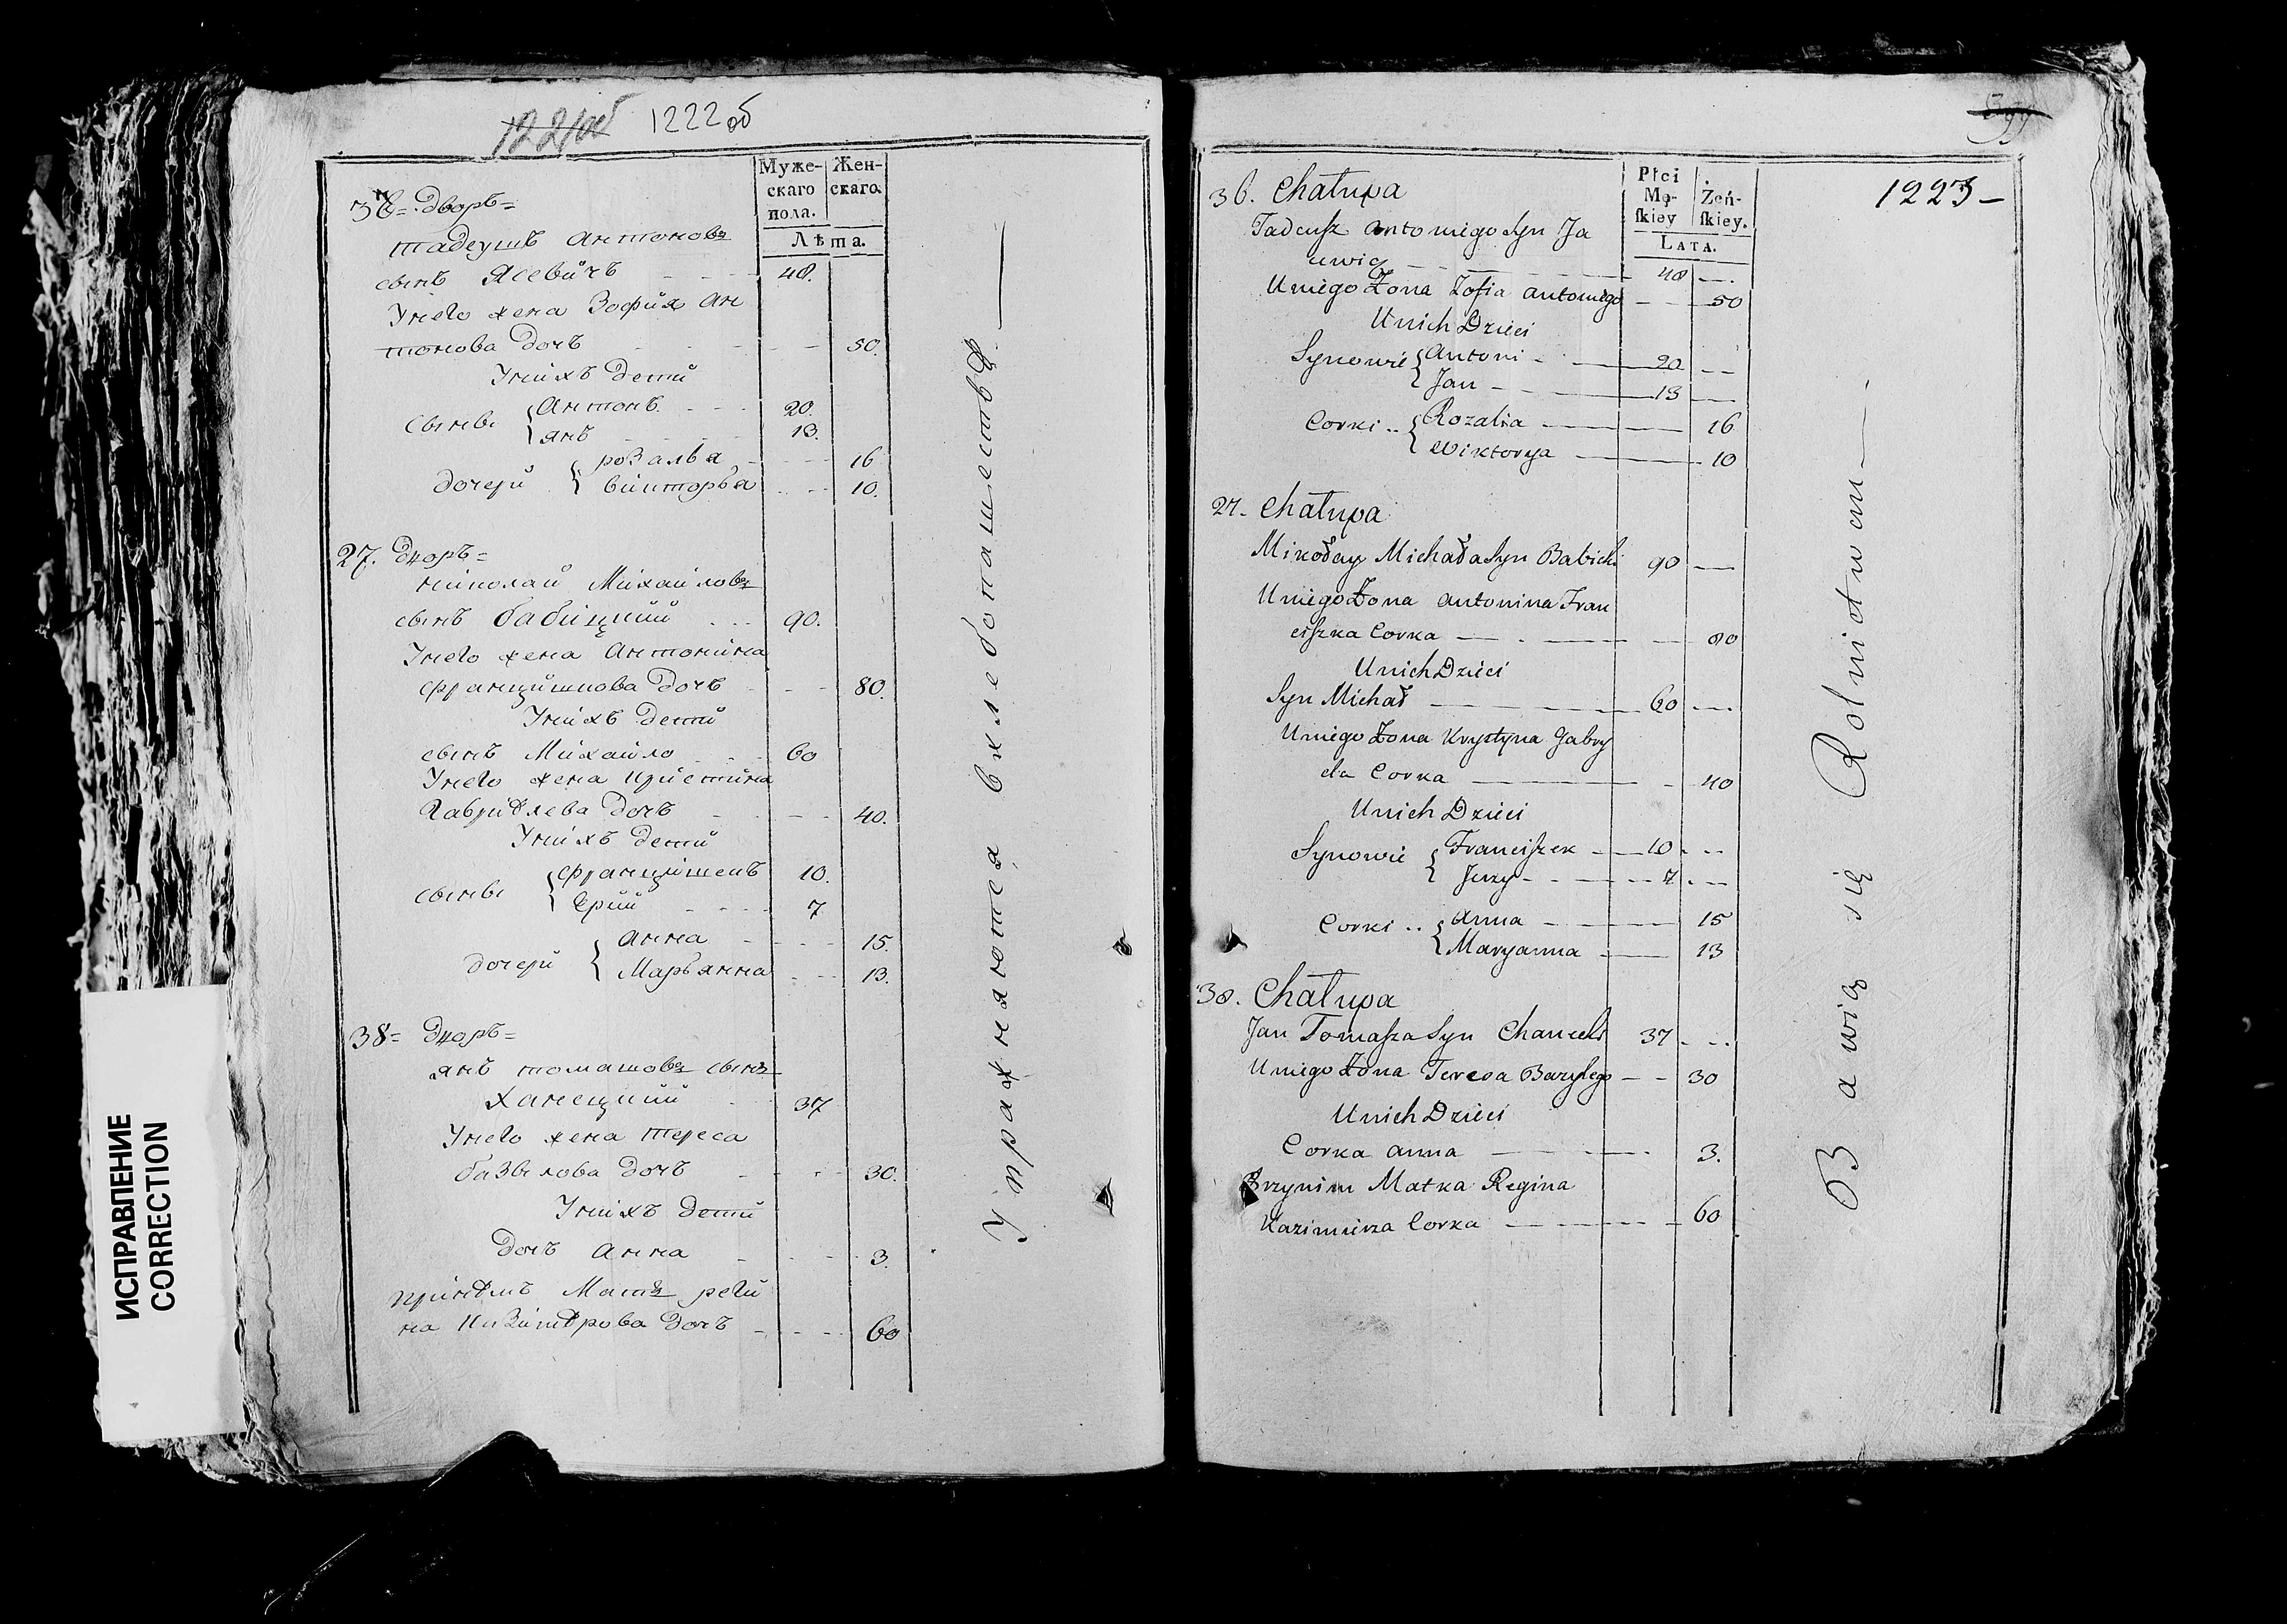 1222об
Муже-
скаго
пола.
Жен-
скаго.
Лѣта.
36= Дворъ=
тадеушъ Антоновъ
сынъ Ясевичъ 48.
Унего жена Зофия Ан
тонова дочъ 50.
Унихъ дети
сынве { Антонъ 20.
янъ 13.
дочери { розалья 16
викторья 10.
27. Дворъ=
николай Михайловъ
сынъ бабицкий 90.
Унего жена Антонина
францишкова дочъ 80.
Унихъ дети
сынъ Михайло 60
Унего жена кристина
Гавриѣлева дочъ 40.
Унихъ дети
сынве { францишекъ 10.
Ерий 7
дочери { Анна 15.
Марьянна 13.
38= Дворъ=
янъ томашовъ сынъ
Ханецкий 37
Унего жена тереса
базылова дочъ 30.
Унихъ дети
дочъ Анна 3.
принѣмъ Матъ реги
на казимѣрова дочъ 60
Упражняются вхлебопашествѣ
1223
Płci
Mę-
ſkiey
Żeń-
ſkiey.
Lata.
36. Chałupa
Tadeuſz Antoniego Syn Ja
ſewicz 48
Uniego Żona Zofia Antoniego 50
Unich Dzieci
Synowie { Antoni 20
Jan 13
Corki .. { Rozalia 16
Wiktorya 10
27. Chałupa
Mikołay Michała Syn Babicki 90
Uniego Żona Antonina Fran
ciſzka Corka 80
Unich Dzieci
Syn Michał 60
Uniego Żona Krystyna Gabry
ela Corka 40
Unich Dzieci
Synowie { Franciſzek 10
Jerzy 7
Corki .. { Anna 15
Maryanna 13
38. Chałupa
Jan Tomaſza Syn Chanecki 37
Uniego Żona Teresa Bazylego 30
Unich Dzieci
Corka Anna 3.
Przynim Matka Regina
Kazimierza Corka 60
Bawią się Rolnictwem
ИСПРАВЛЕНИЕ
CORRECTION